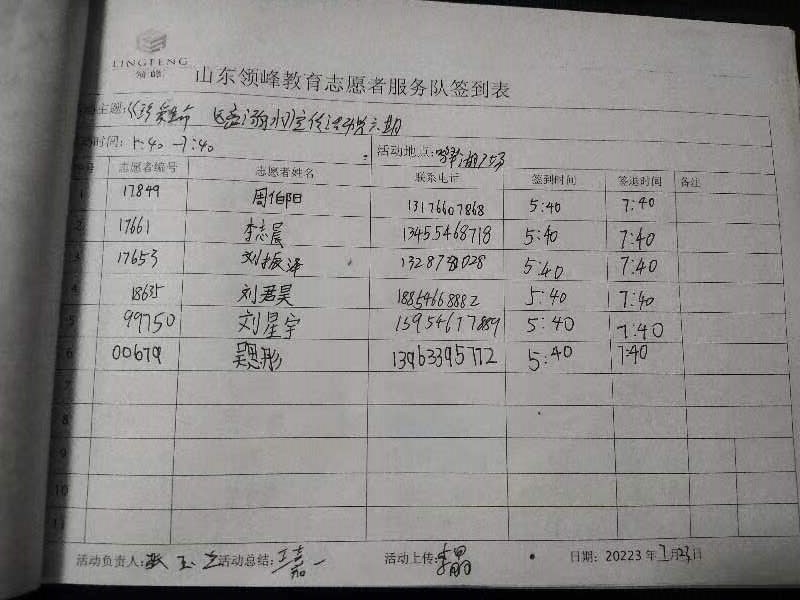 LINGFENG
领峰
山东领峰教育志愿者服务队签到表
主题:《珍爱生命 区意溺水》宣传活动第六期
时间: 5:40 —7:40 活动地点:
号 志愿者编号 志愿者姓名 联系电话 签到时间 签退时间 备注
1 17849 周伯阳 13176607868 5:40 7:40
2 17661 李志晨 13455468718 5:40 7:40
3 17653 刘振泽 5:40 7:40
4 18635 刘君昊 18854668882 5:40 7:40
5 99750 刘星宇 13954677889 5:40 7:40
6 00679 吴思彤 13963395772 5:40 7:40
7
8
9
10
11
活动负责人: 张玉 活动总结: 王嘉一 活动上传: 李晶 日期: 20223年7月23日